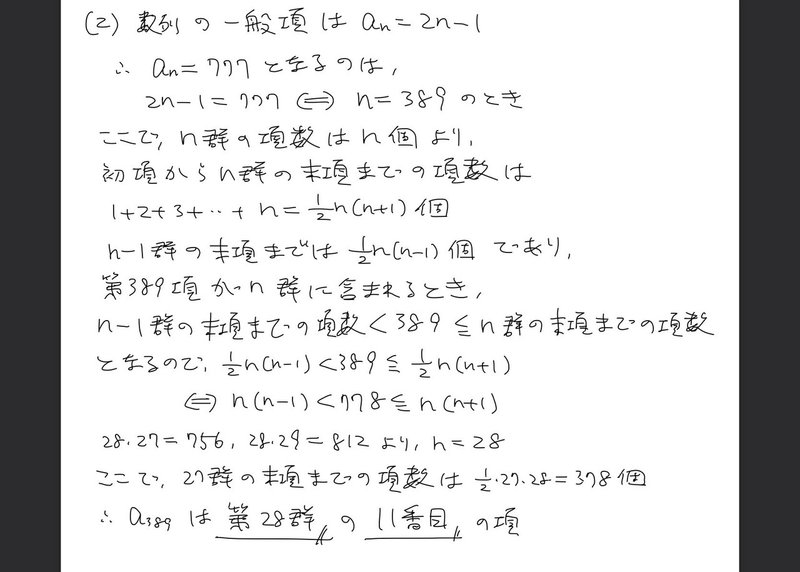 (2) 数列の一般項は an=2n-1
∴ an=777 となるのは,
2n-1=777 ⇔ n=389 のとき
ここで, n群の項数は n個より,
初項からn群の末項までの項数は
1+2+3+‥+n=1/2n(n+1)個
n-1群の末項までは 1/2n(n-1)個 であり,
第389項がn群に含まれるとき,
n-1群の末項までの項数<389≦n群の末項までの項数
となるので, 1/2n(n-1)<389≦1/2n(n+1)
⇔ n(n-1)<778≦n(n+1)
28・27=756, 28・29=812 より, n=28
ここで, 27群の末項までの項数は 1/2・27・28=378個
∴ a389 は 第28群 の 11番目 の項